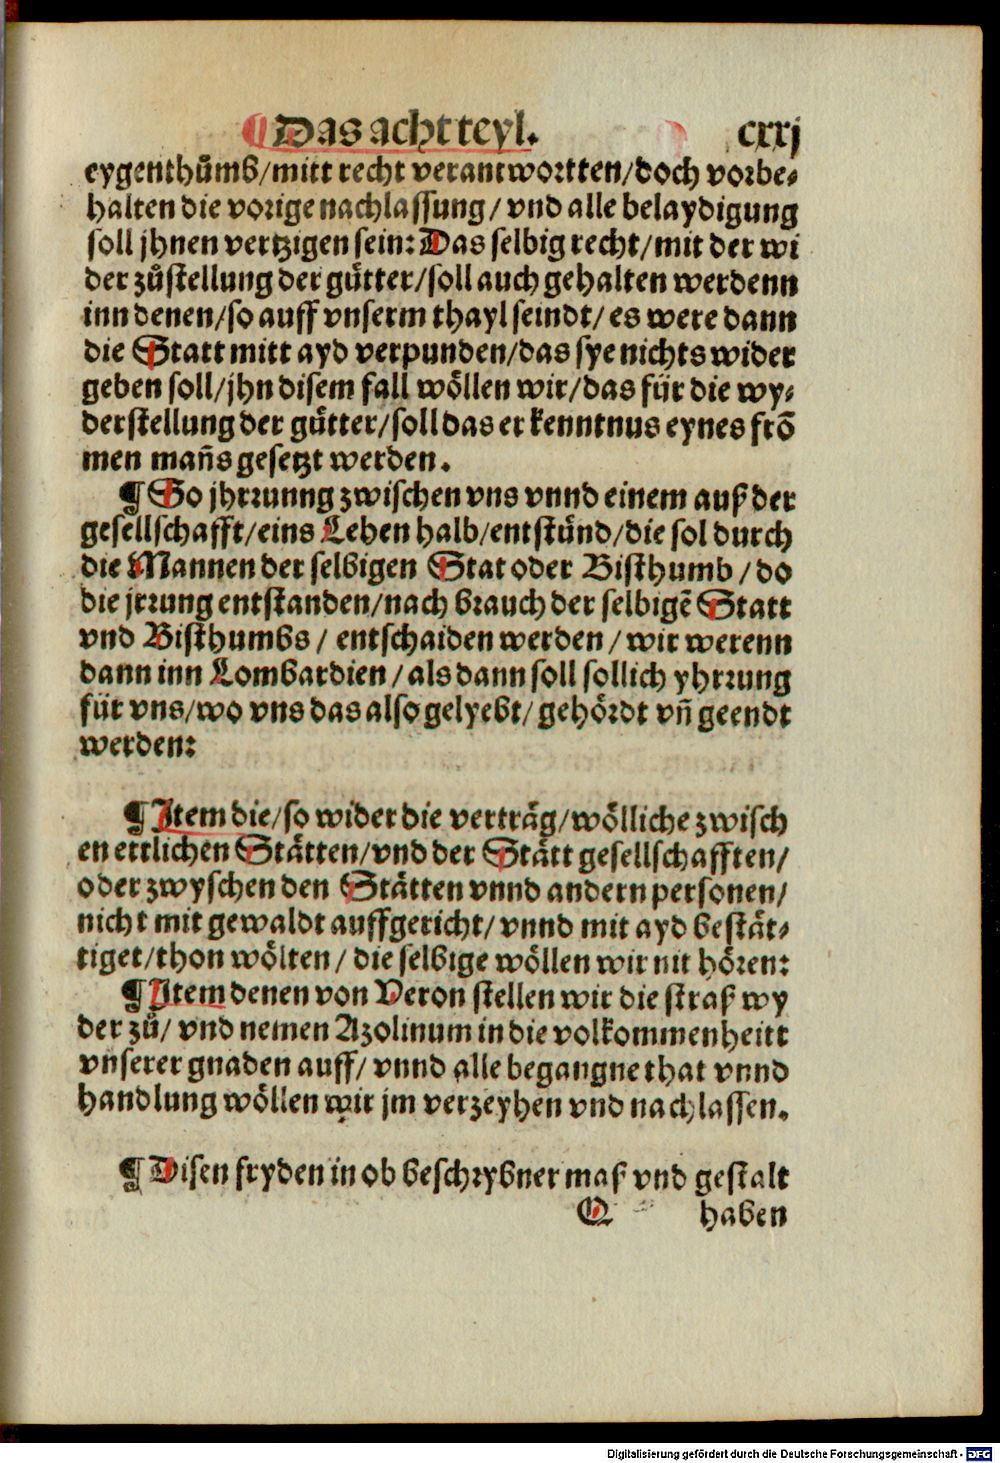 Das acht teyl. cxxj
eygenthůmbs/mitt recht verantwortten/doch vorbe⸗
halten die vorige nachlassung/ vnd alle belaydigung
soll jhnen vertzigen sein: Das selbig recht/mit der wi
der zůstellung der gůtter/soll auch gehalten werdenn
inn denen/so auff vnserm thayl seindt/ es were dann
die Statt mitt ayd verpunden/das sye nichts wider
geben soll/jhn disem fall wöllen wir/das für die wy⸗
derstellung der gůtter/soll das erkenntnus eynes frō
men mañs gesetzt werden.
¶ So jhrrunng zwischen vns vnnd einem auß der
gesellschafft/eins Lehen halb/entstünd/die sol durch
die Mannen der selbigen Stat oder Bisthumb/do
die jrrung entstanden/nach brauch der selbigē Statt
vnd Bisthumbs/ entschaiden werden/wir werenn
dann inn Lombardien/als dann soll sollich yhrrung
für vns/wo vns das also gelyebt/ gehördt vñ geendt
werden:
¶ Item die/so wider die verträg/wölliche zwisch
en ettlichen Stätten/vnd der Stätt gesellschafften/
oder zwyschen den Stätten vnnd andern personen/
nicht mit gewaldt auffgericht/ vnnd mit ayd bestät⸗
tiget/thon wölten/ die selbige wöllen wir nit hören:
¶ Item denen von Veron stellen wir die straß wy
der zů/ vnd nemen Azolinum in die volkommenheitt
vnserer gnaden auff/ vnnd alle begangne that vnnd
handlung wöllen wir jm verzeyhen vnd nachlassen.
¶ Disen fryden in ob beschrybner maß vnd gestalt
Q haben
Digitalisierung gefördert durch die Deutsche Forschungsgemeinschaft - DFG